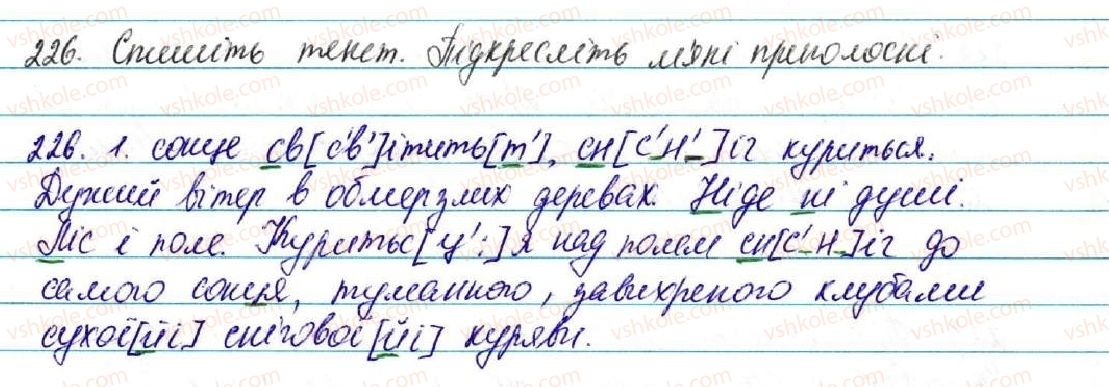 226. Спишіть текст. Підкресліть м'які приголосні.
226. 1. сонце св[с'в']ітить[т'], сн[с'н']іг куриться.
Дужий вітер в обмерзлих деревах. Ніде ні душі.
Ліс і поле. Куритьс[ц':]я над полем сн[с'н]іг до
самого сонця, туманного, завихреного клубами
сухої[йі] снігової[йі] куряви.